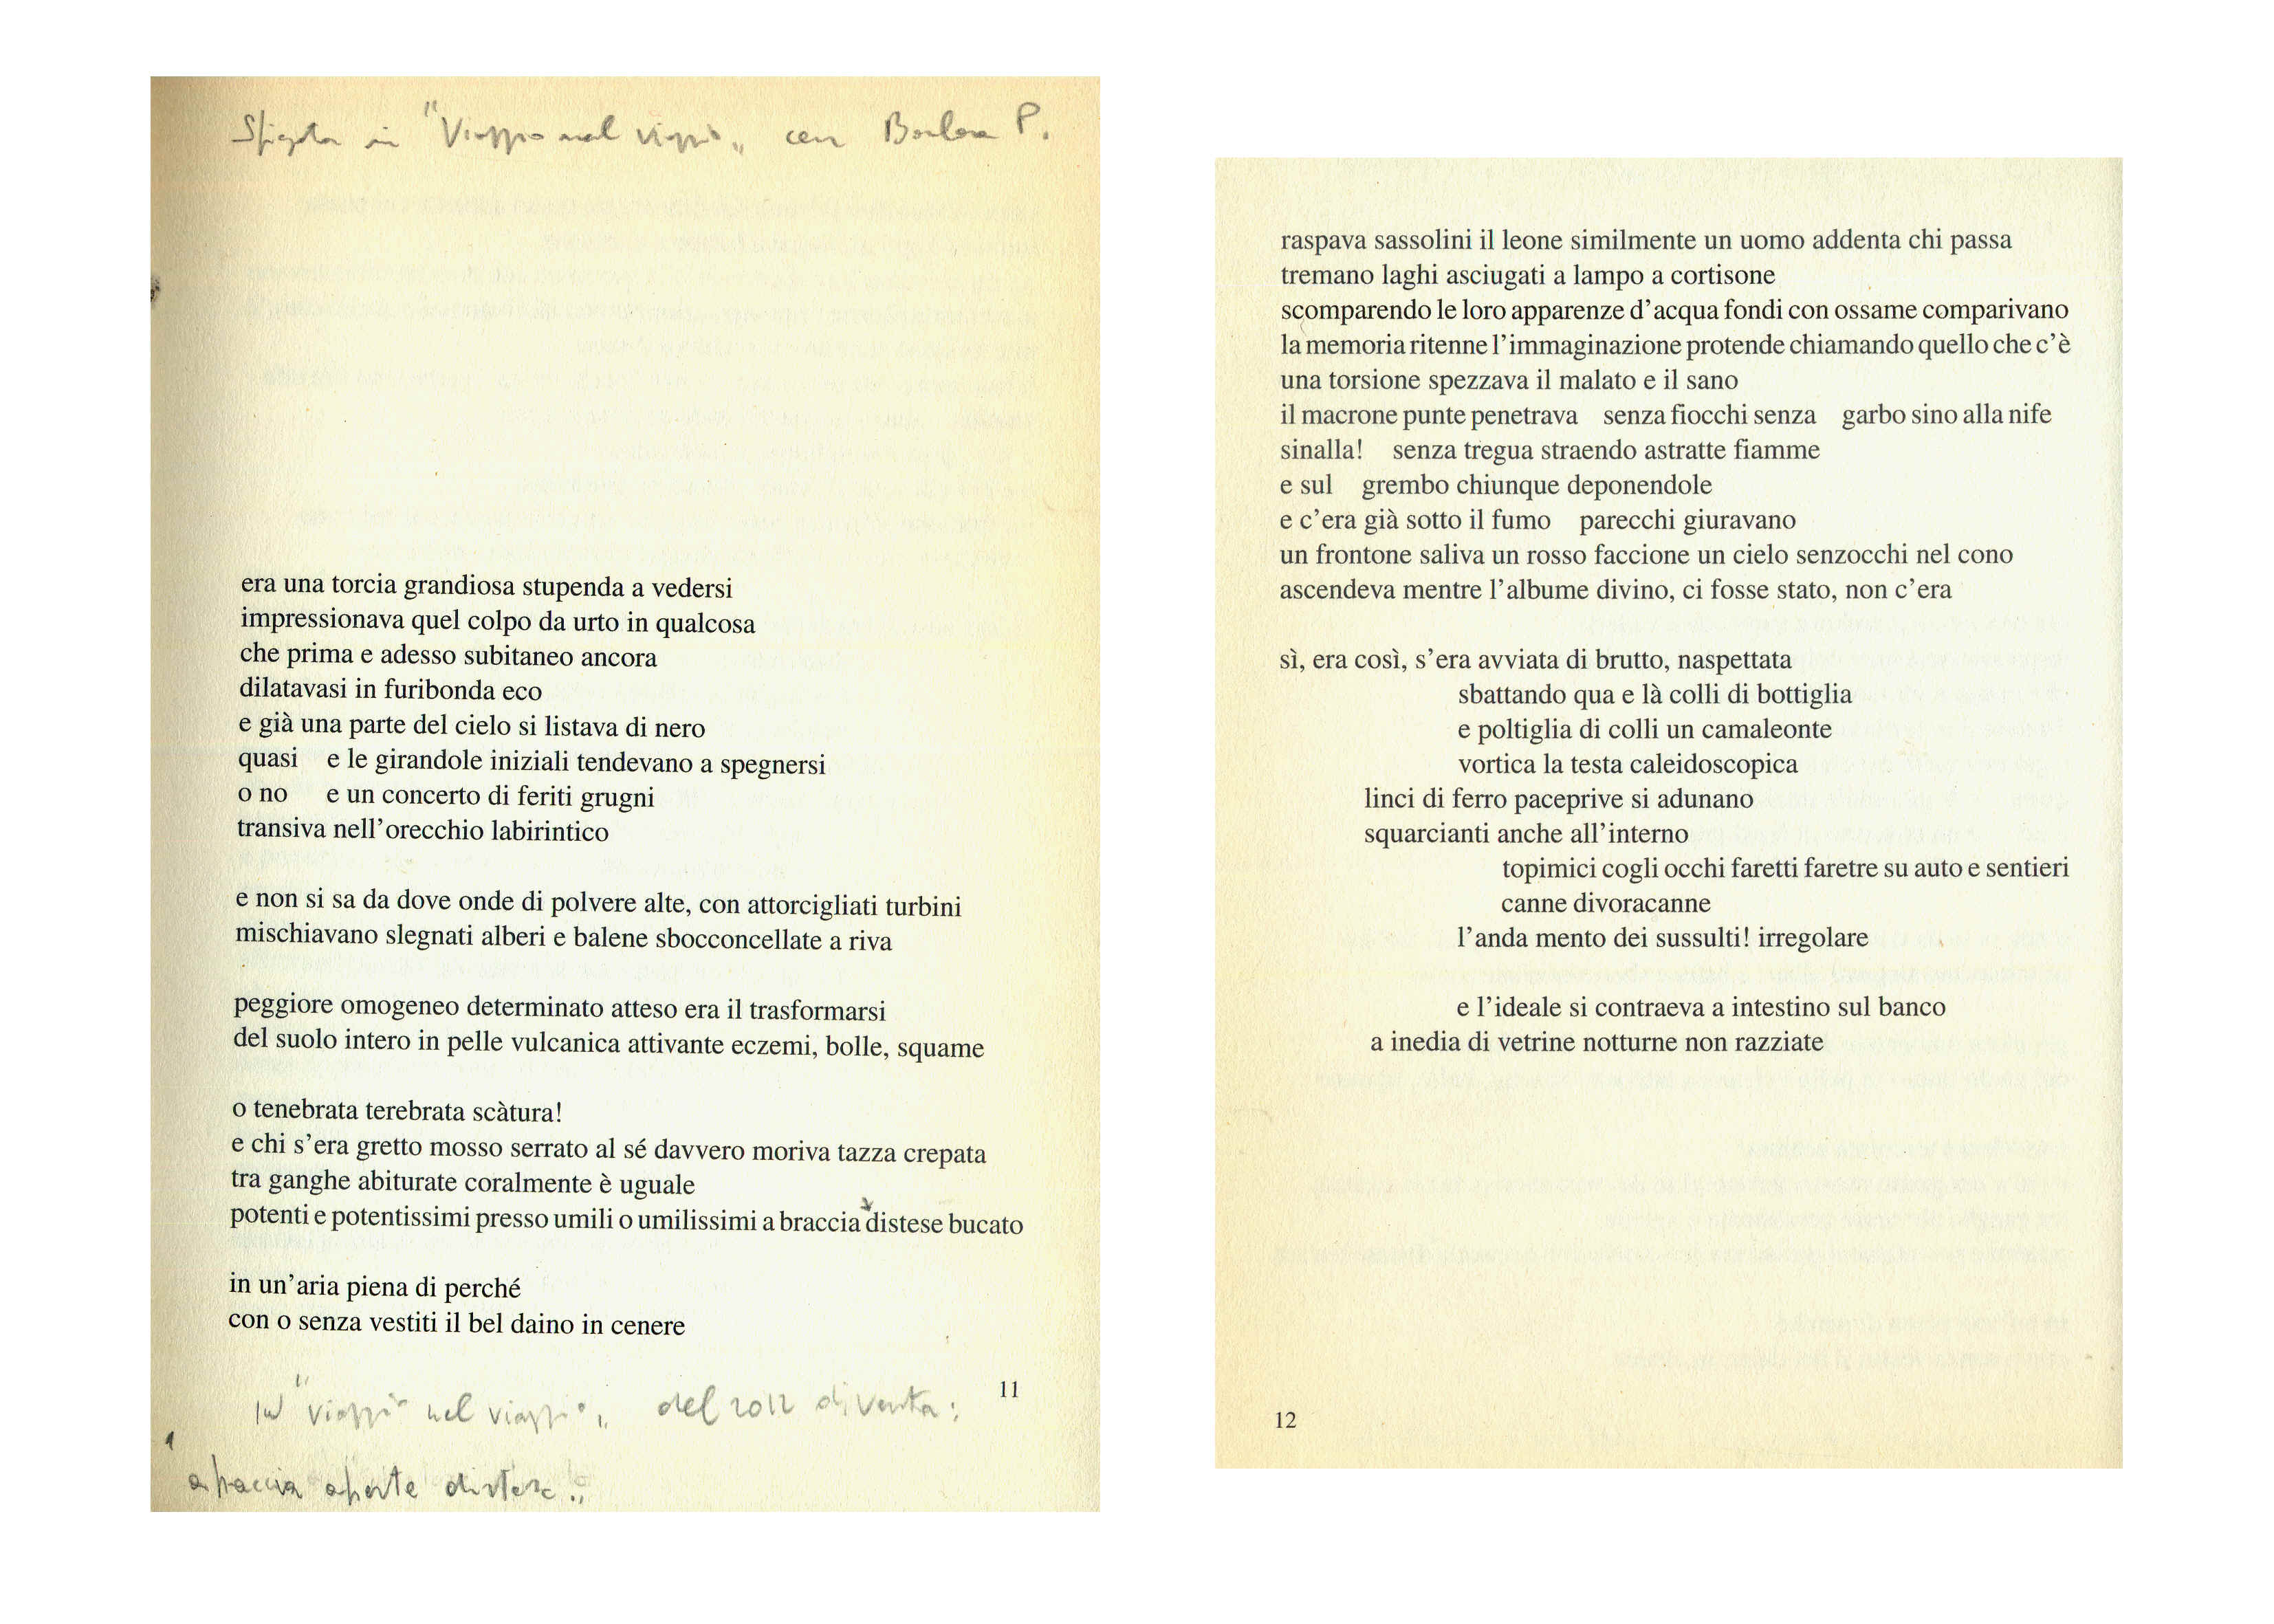 in "Viaggio nel viaggio" con P.
era una torcia grandiosa stupenda a vedersi
impressionava quel colpo da urto in qualcosa
che prima e adesso subitaneo ancora
dilatavasi in furibonda eco
e già una parte del cielo si listava di nero
quasi e le girandole iniziali tendevano a spegnersi
o no e un concerto di feriti grugni
transiva nell'orecchio labirintico
e non si sa da dove onde di polvere alte, con attorcigliati turbini
mischiavano slegnati alberi e balene sbocconcellate a riva
peggiore omogeneo determinato atteso era il trasformarsi
del suolo intero in pelle vulcanica attivante eczemi, bolle, squame
o tenebrata terebrata scàtura!
e chi s'era gretto mosso serrato al sé davvero moriva tazza crepata
tra ganghe abiturate coralmente è uguale
potenti e potentissimi presso umili o umilissimi a braccia distese bucato
in un'aria piena di perché
con o senza vestiti il bel daino in cenere
11
in "Viaggio nel viaggio" del 2012 diventa:
a braccia aperte distese
raspava sassolini il leone similmente un uomo addenta chi passa
tremano laghi asciugati a lampo a cortisone
scomparendo le loro apparenze d'acqua fondi con ossame comparivano
la memoria ritenne l'immaginazione protende chiamando quello che c'è
una torsione spezzava il malato e il sano
il macrone punte penetrava senza fiocchi senza garbo sino alla nife
sinalla! senza tregua straendo astratte fiamme
e sul grembo chiunque deponendole
e c'era già sotto il fumo parecchi giuravano
un frontone saliva un rosso faccione un cielo senzocchi nel cono
ascendeva mentre l'albume divino, ci fosse stato, non c'era
sì, era così, s'era avviata di brutto, naspettata
sbattando qua e là colli di bottiglia
e poltiglia di colli un camaleonte
vortica la testa caleidoscopica
linci di ferro paceprive si adunano
squarcianti anche all'interno
topimici cogli occhi faretti faretre su auto e sentieri
canne divoracanne
l'anda mento dei sussulti! irregolare
e l'ideale si contraeva a intestino sul banco
a inedia di vetrine notturne non razziate
12